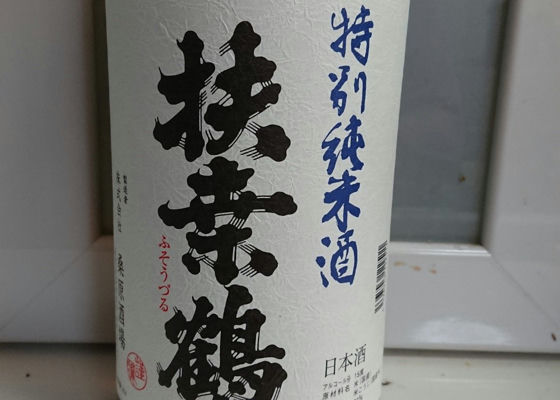 特別純米酒
扶桒鶴
ふそうづる
製造者
株式会社 桑原酒場
日本酒
アルコール分 15度
原材料名 米(国産)